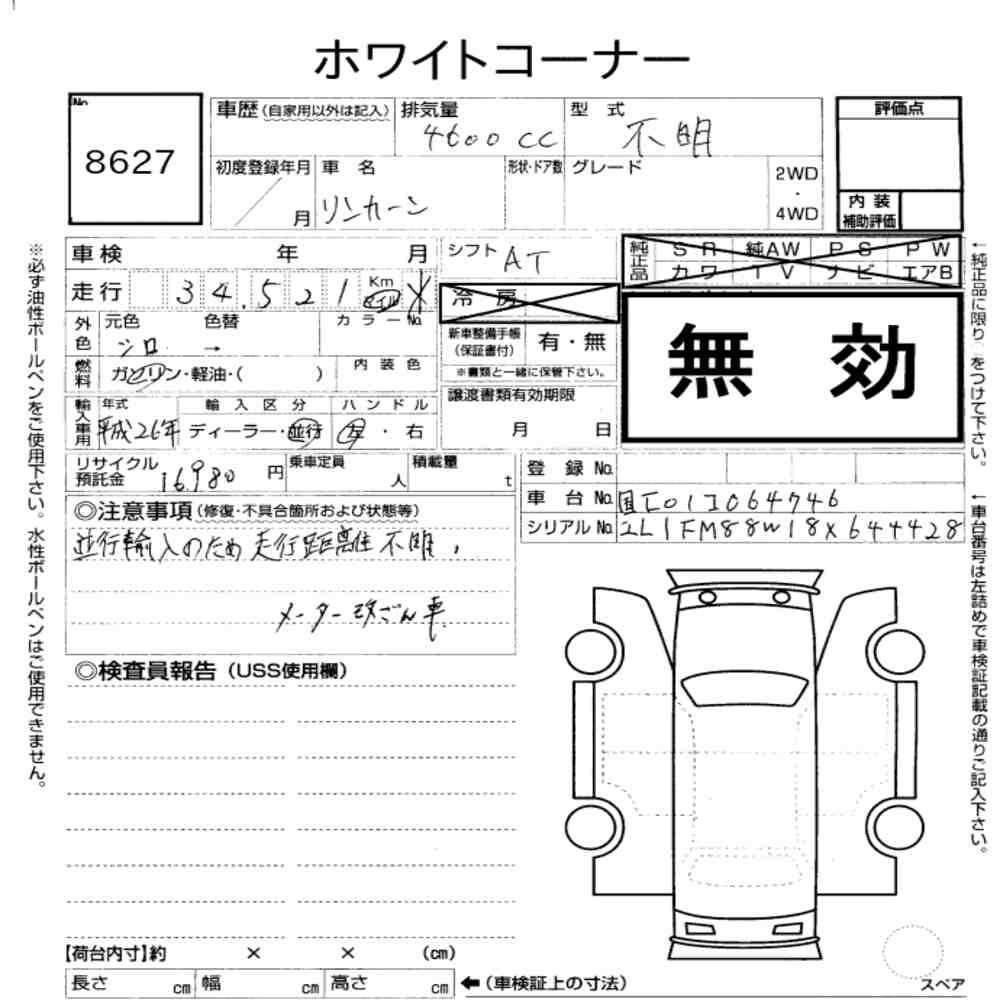 ホワイトコーナー
No.
8627
車歴(自家用以外は記入)
排気量
4600 CC
型式
不明
評価点
初度登録年月
/ 月
車名
リンカーン
形状・ドア数
グレード
2WD
・
4WD
内装
補助評価
車検 年 月
シフト AT
純正品
SR 純AW PS PW
カワ TV ナビ エアB
走行 34,521 Km マイル
冷房
無効
外色
元色 シロ
色替 →
カラーNo.
新車整備手帳
(保証書付)
有・無
※書類と一緒に保管下さい。
燃料
ガソリン・軽油・( )
内装色
輸入車用
年式
平成26年
輸入区分
ディーラー・並行
ハンドル
左・右
譲渡書類有効期限
月 日
リサイクル
預託金
16,980 円
乗車定員 人
積載量 t
登録No.
車台No. 国土01I064746
シリアルNo. 2L1FM88W18X644428
◎注意事項(修復・不具合箇所および状態等)
並行輸入のため走行距離不明.
メーター改ざん車
◎検査員報告(USS使用欄)
【荷台内寸】約 × × (cm)
長さ cm 幅 cm 高さ cm
←(車検証上の寸法)
スペア
※必ず油性ボールペンをご使用下さい。水性ボールペンはご使用できません。
←純正品に限り をつけて下さい。
←車台番号は左詰めで車検証記載の通りご記入下さい。